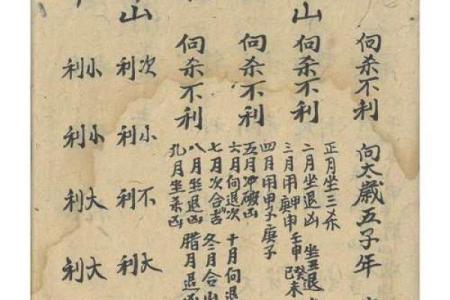 向杀不利 向太歲五子年
山 向杀不利
正月坐三杀
二月坐退凶 坐丑退
三月用庚申 壬申 癸未
四月用甲子庚子
向杀不利
五月冲破凶
六月向退次 十月向退
七月次合吉 冬月合
向杀不利
八月坐退凶 臘月退
九月坐杀凶
山 次利 小利 不利 大利
小利 小利 大利 大利